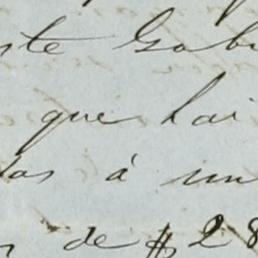 este Gabi
que hai
las á un
de $ 28